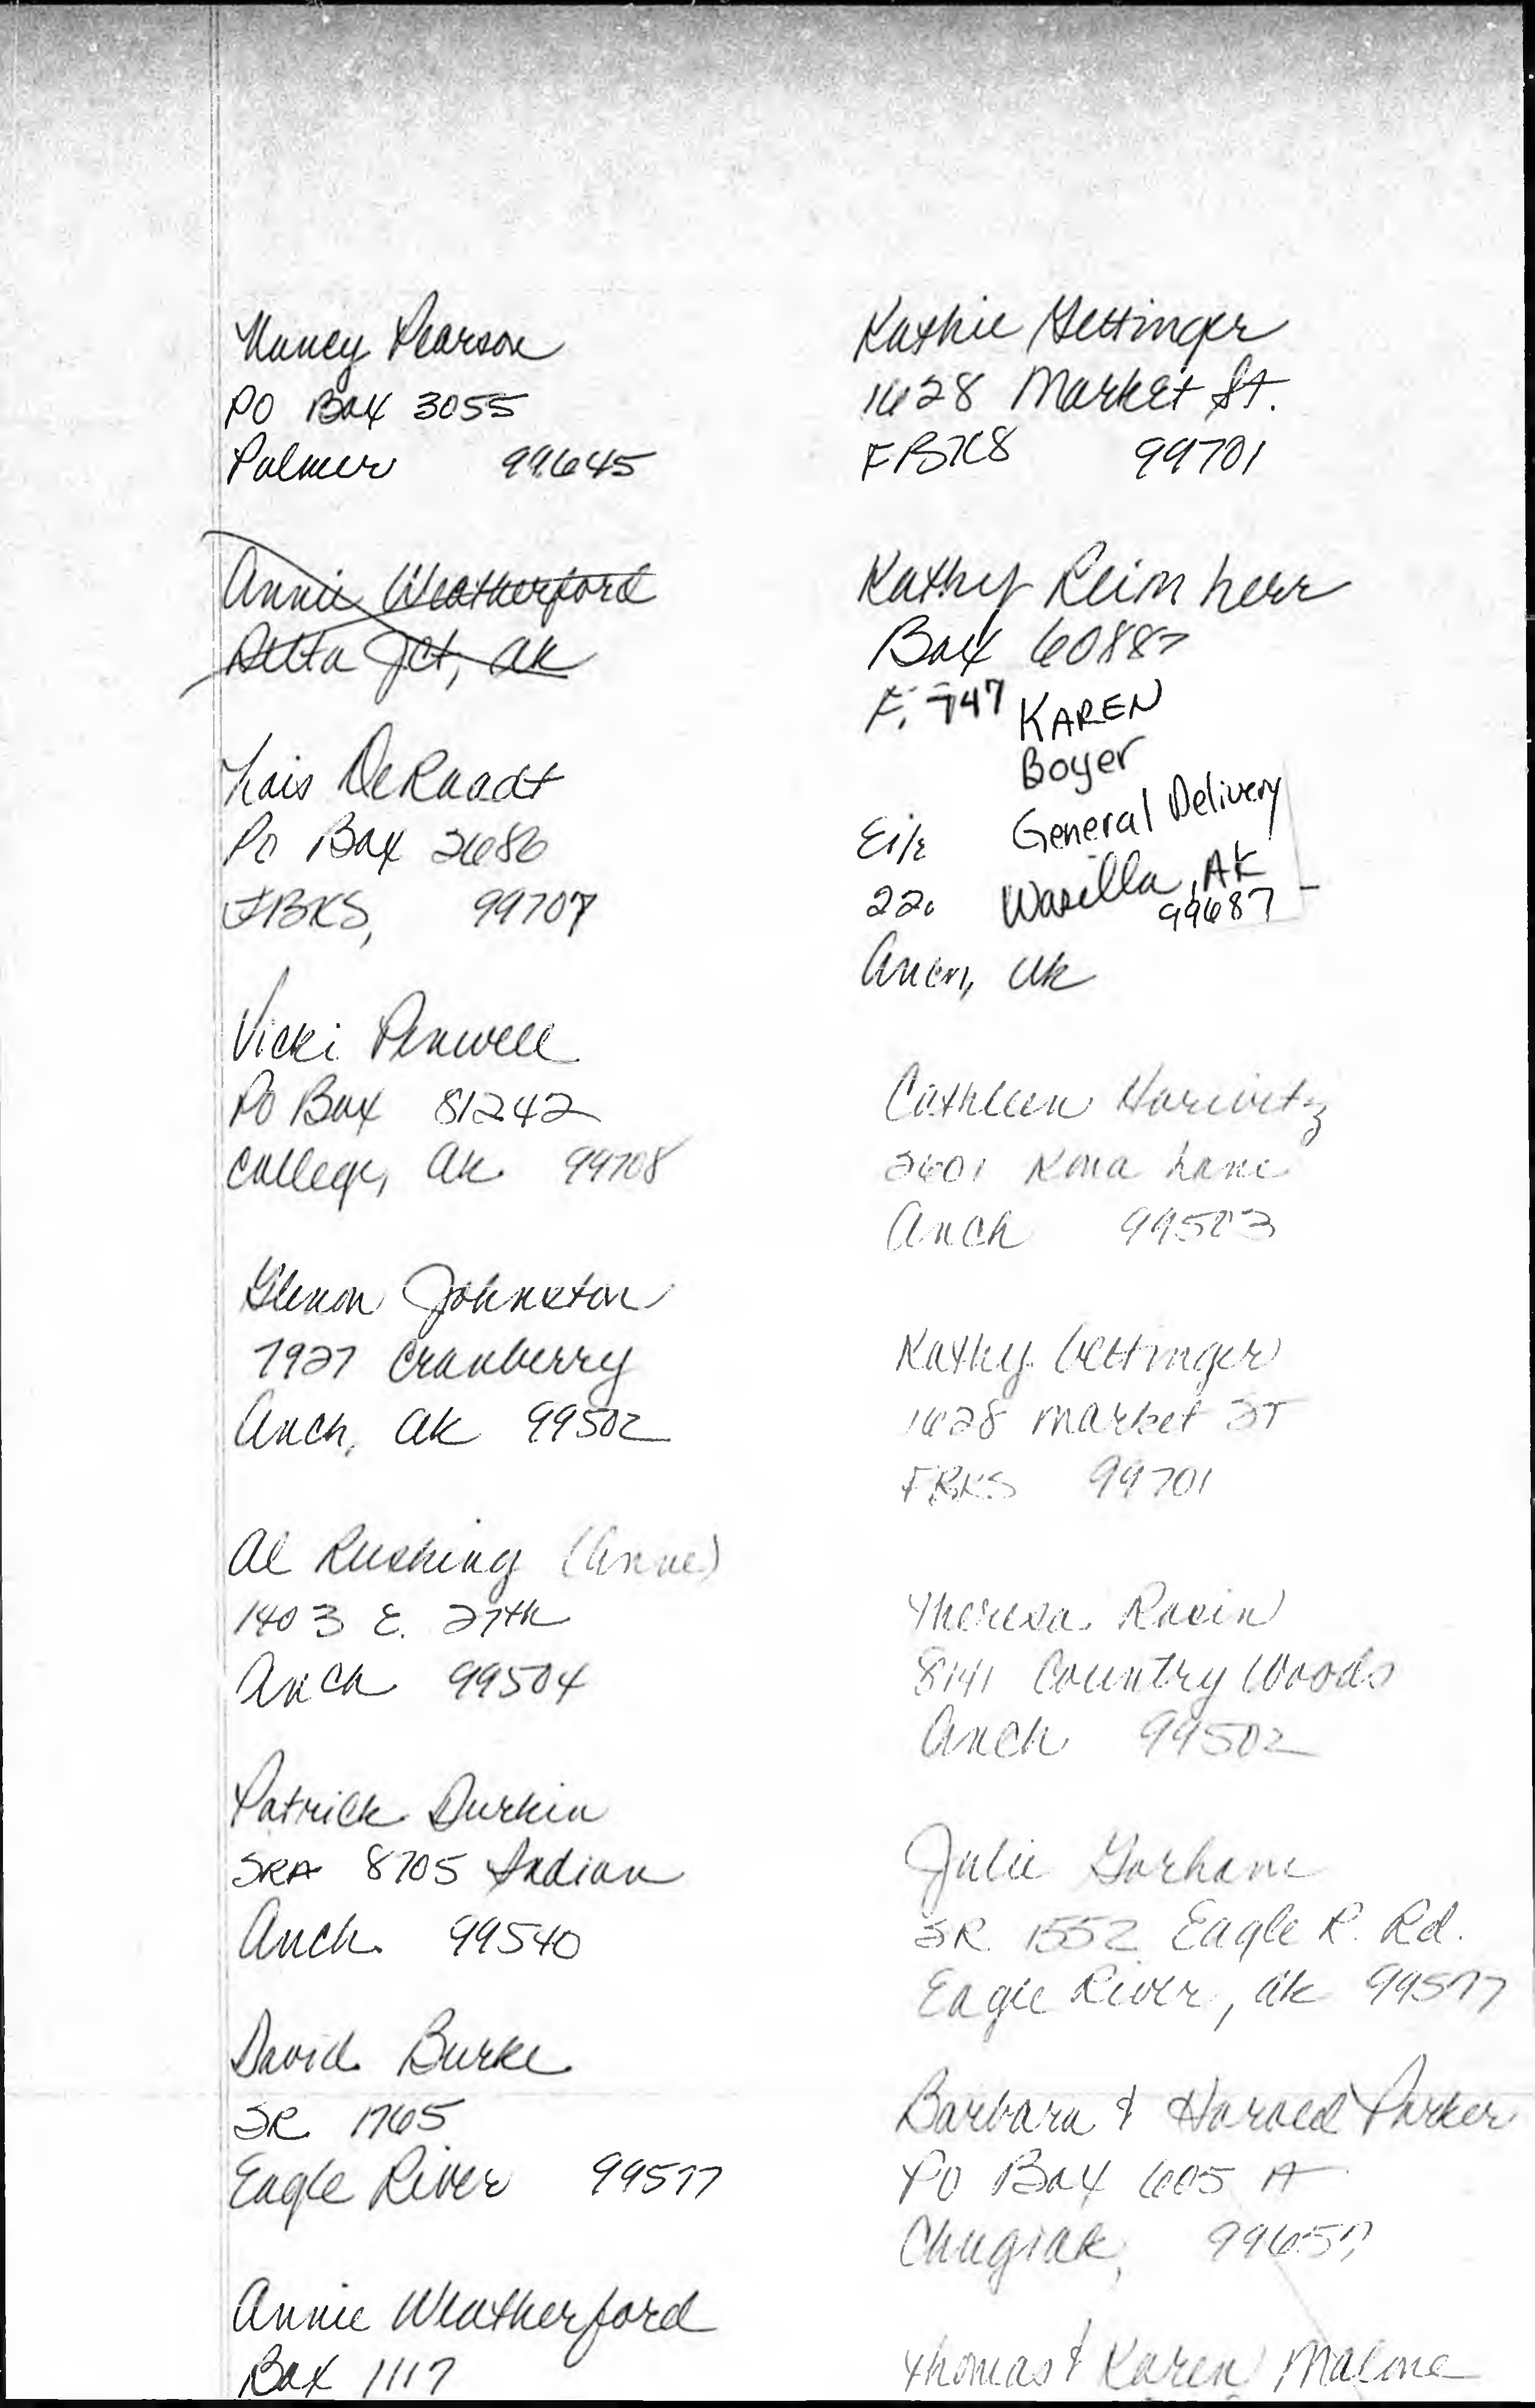 Nancy Pearson
PO Box 3055
Palmer 99645
Annie Weatherford
Delta Jct, AK
Lois DeRaadt
Po Box 2686
FBKS, 99707
Vicki Penwell
PO Box 81242
College, AK 99708
Glenon Johnston
7927 Cranberry
Anch, AK 99502
Al Rushing (Anne)
1403 E. 27th
Anch 99504
Patrick Durkin
SRA 8705 Indian
Anch. 99540
David Burke
SR 1765
Eagle River 99577
Annie Weatherford
Box 1117
Kathie Gettinger
1628 Market St.
FBKS 99701
Kathy Reimherr
Box 60887
F. 747
KAREN
Boyer
General Delivery
Wasilla, AK
99687
220
Anch, AK
Cathleen Horwitz
2601 Kona Lane
Anch
Kathy Gettinger
1628 Market ST
FBKS 99701
Theresa Rasin
8141 Country Woods
Anch 99502
Julie Gorham
SR 1552 Eagle R. Rd.
Eagle River, AK 99577
Barbara & Harold Parker
PO Box 605 A
Chugiak,
Thomas & Karen Malone